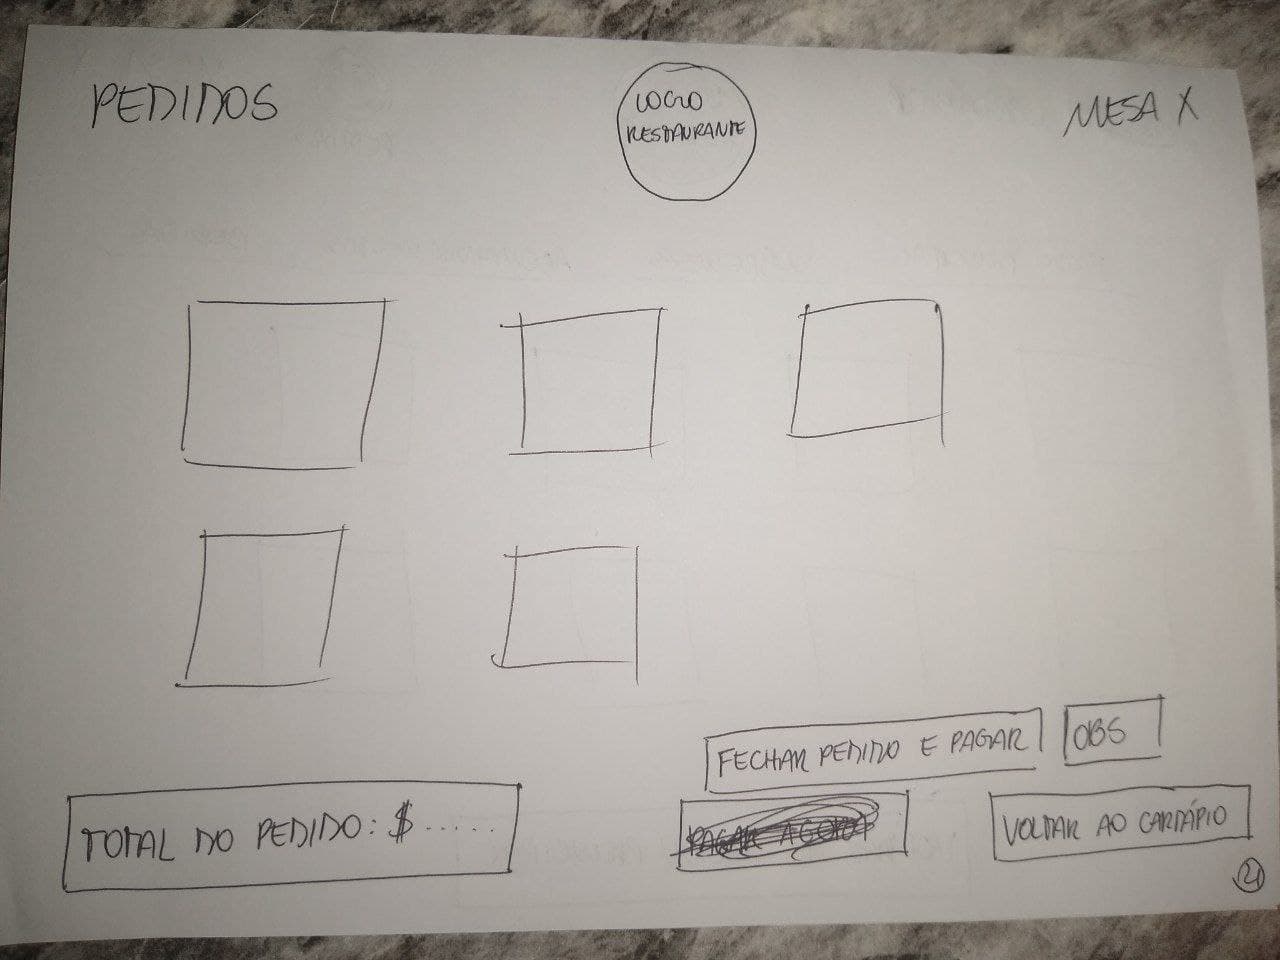 PEDIDOS
LOGO
RESTAURANTE
MESA X
FECHAR PEDIDO E PAGAR
OBS
TOTAL DO PEDIDO: $ .....
PAGAR AGORA
VOLTAR AO CARDÁPIO